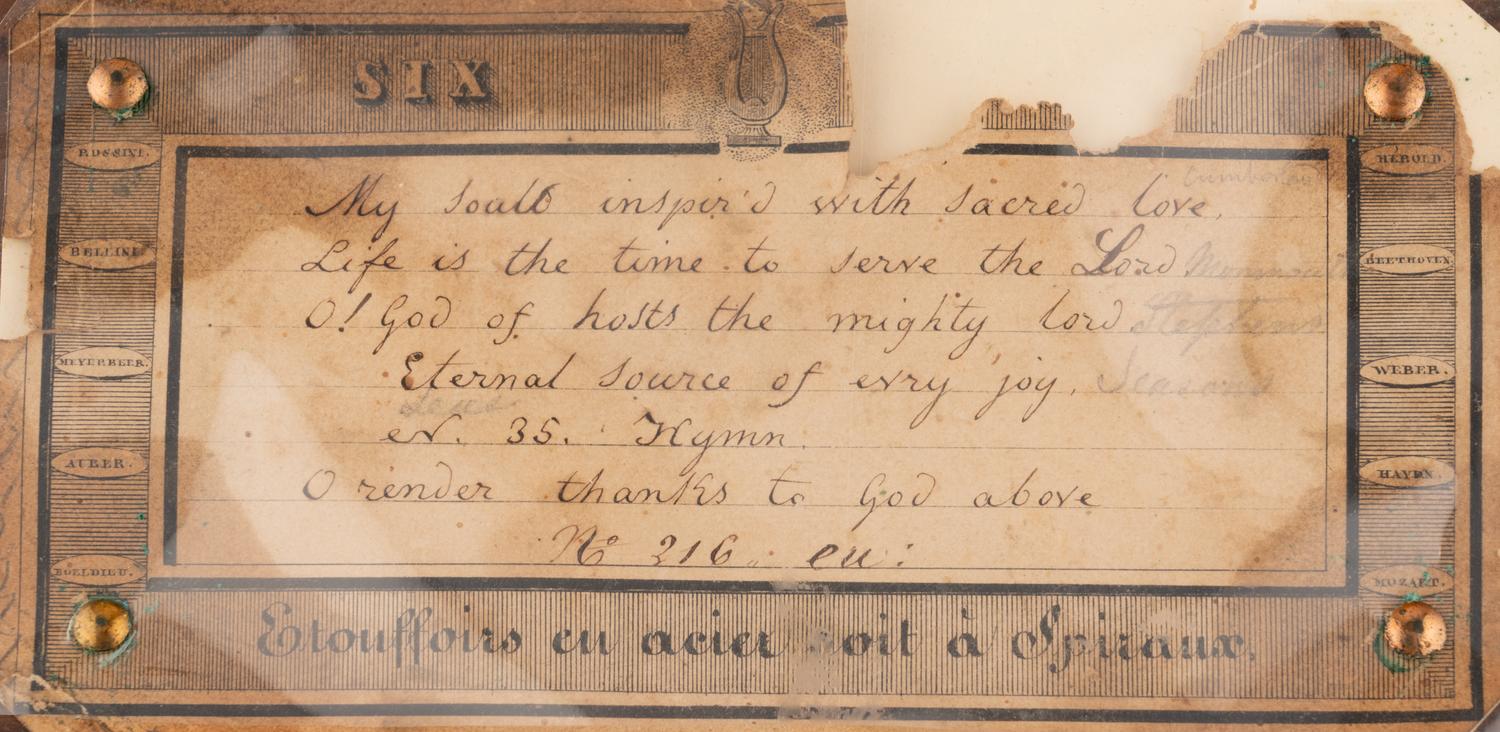 SIX
ROSSINI.
BELLINI.
MEYERBEER.
AUBER.
BOELDIEU.
My soall inspir'd with sacred love,
Life is the time to serve the Lord
O! God of hosts the mighty lord Stephens
Eternal source of evry joy. Seasons
ev. 35. Hymn.
O render thanks to God above
No 216. eu:
HÉROLD.
BEETHOVEN.
WEBER.
HAYDN.
MOZART.
Etouffoirs en acier soit à Spiraux.